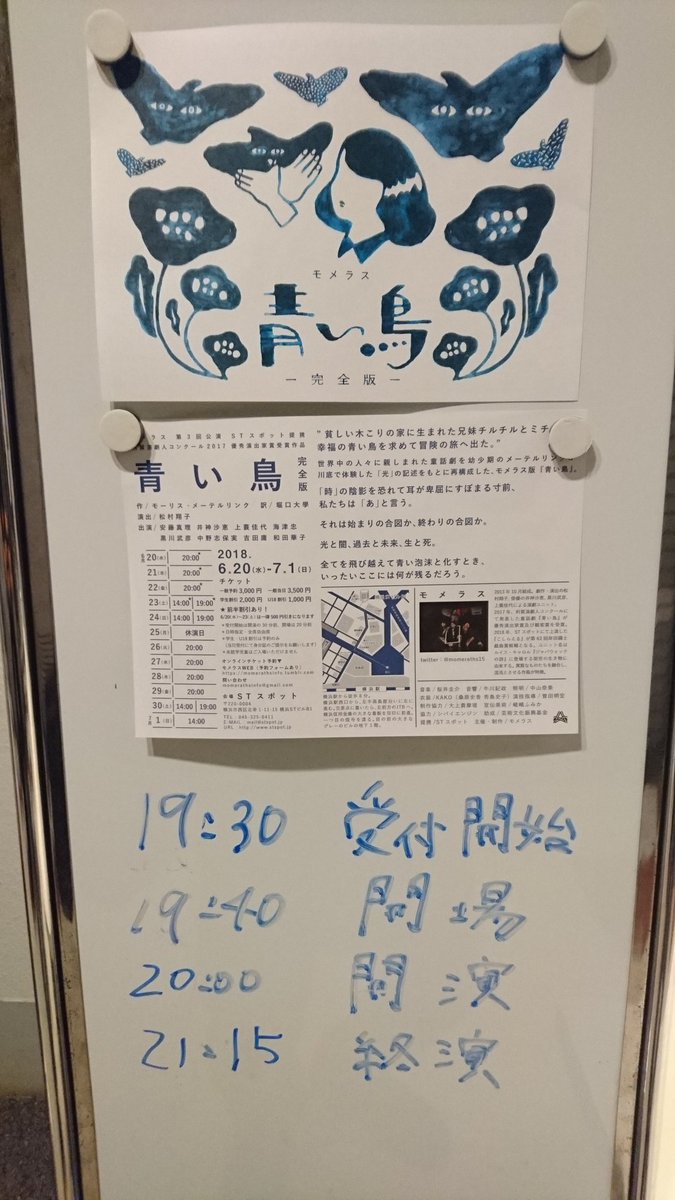 モメラス
青い鳥
ー完全版ー
ラス 第3回公演 STスポット提携
劇人コンクール2017 優秀演出家賞受賞作品
青い鳥 完全版
作/モーリス・メーテルリンク 訳/堀口大學
演出/松村翔子
出演/安藤真理 井神沙恵 上蓑佳代 海津忠
黒川武彦 中野志保実 吉田庸 和田華子
2018.
6.20(水)-7.1(日)
6月 20(水) 20:00★
21(木) 20:00★
22(金) 20:00★
23(土) 14:00★ 19:00
24(日) 14:00 19:00
25(月) 休演日
26(火) 20:00
27(水) 20:00
28(木) 20:00
29(金) 20:00
30(土) 14:00 19:00
7月 1(日) 14:00
チケット
一般予約 3,000円 一般当日 3,500円
学生割引 2,000円 U18割引 1,000円
★前半割引あり!
オンラインチケット予約▼
モメラスWEB(予約フォームあり)
https://momerathsinfo.tumblr.com
問い合わせ
momerathsinfo@gmail.com
会場 STスポット
〒220-0004
横浜市西区北幸1-11-15 横浜STビルB1
TEL: 045-325-0411
E:MAIL mail@stspot.jp
URL http://www.stspot.jp
"貧しい木こりの家に生まれた兄妹チルチルとミチ
幸福の青い鳥を求めて冒険の旅へ出た。"
世界中の人々に親しまれた童話劇を幼少期のメーテルリンク
川底で体験した「光」の記述をもとに再構成した、モメラス版『青い鳥』。
「時」の陰影を恐れて耳が卑屈にすぼまる寸前、
私たちは「あ」と言う。
それは始まりの合図か、終わりの合図か。
光と闇、過去と未来、生と死。
全てを飛び越えて青い泡沫と化すとき、
いったいここには何が残るだろう。
横浜駅
モメラス
twitter:@momeraths15
提携/STスポット 主催・制作/モメラス
19:30 受付開始
19:40 開場
20:00 開演
21:15 終演